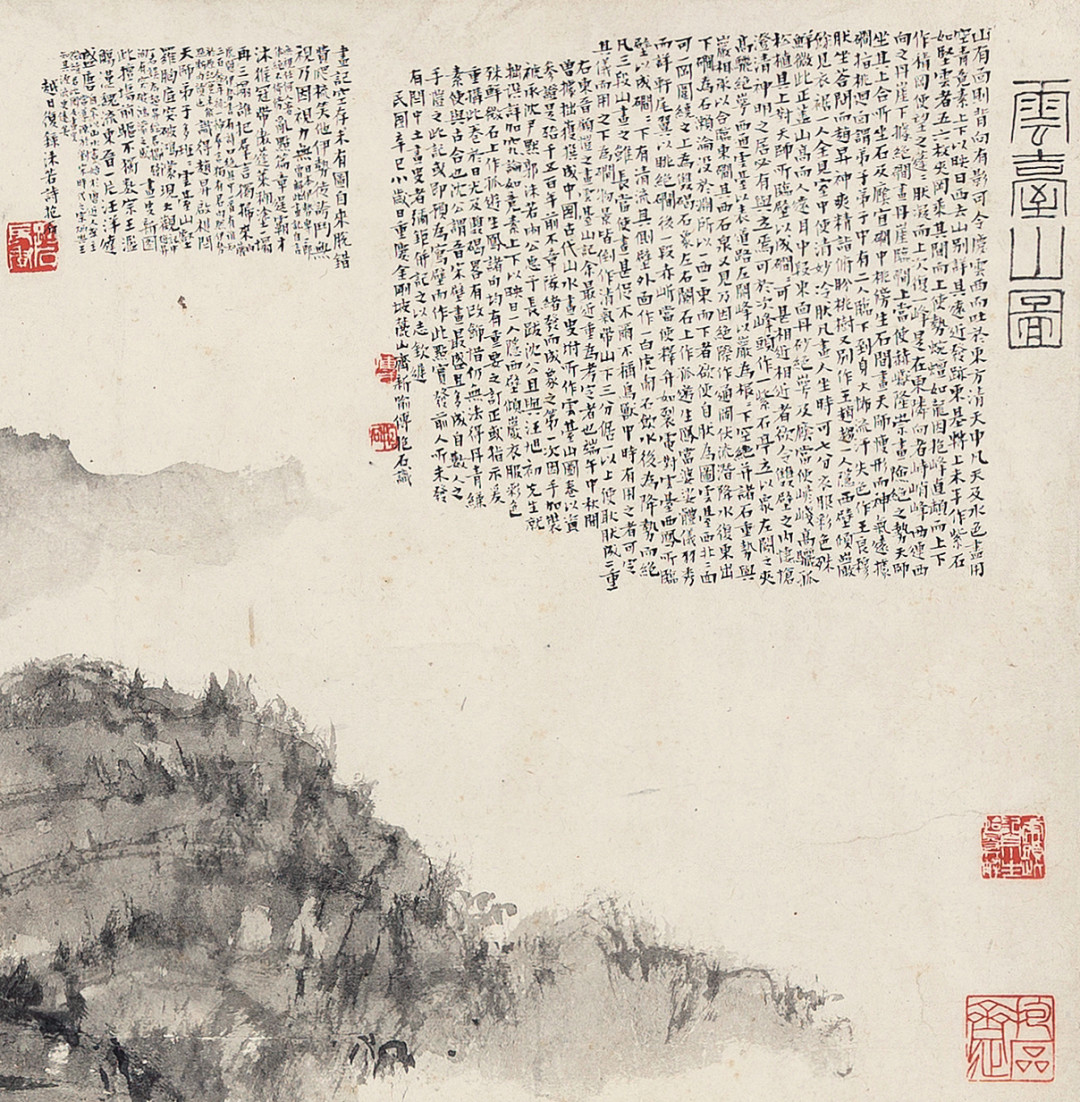 雲臺山圖
山有面則背向有影可令慶雲西而吐於東方清天中凡天及水色盡用
空青竟素上下以暎日西去山別詳其遠近發跡東基轉上未半作紫石
如堅雲者五六枚夾岡乘其間而上使勢蜿蟺如龍因抱峰直頓而上下
作積岡使望之蓬蓬然凝而上次復一峰是石東隣向者峙峭峰西連西
向之丹崖下據絕磵畫丹崖臨澗上當使赫巘隆崇畫險絕之勢天師
坐其上合所坐石及廕宜磵中桃傍生石間畫天師瘦形而神氣遠據
磵指桃迴面謂弟子弟子中有二人臨下到身大怖流汗失色作王良穆
然坐答問而趙昇神爽精詣俯盻桃樹又別作王趙趨一人隱西壁傾巖
餘見衣裾一人全見室中使清妙冷然凡畫人坐時可七分衣服彩色殊
鮮微此正蓋山高而人遠耳中段東面丹砂絕崿及廕當使嵃嵥高驪孤
松植其上對天師所臨壁以成磵磵可甚相近相近者欲令雙壁之內悽愴
澄清神明之居必有與立焉可於次峰頭作一紫石亭立以象左闕之夾
高驪絕崿西通雲臺以表道路左闕峰以巖為根根下空絕并諸石重勢與
巖相承以合臨東磵其西石泉又見乃因絕際作通岡伏流潛降水復東出
下磵為石瀨淪沒於淵所以一西一東而下者欲使自然為圖雲臺西北二面
可一岡圖繞之上為雙碣石象左右闕石上作孤遊生鳳當婆娑體儀羽秀
而詳軒尾翼以眺絕磵後一段赤岓當使釋弁如裂電對雲臺西鳳所臨
壁以成磵磵下有清流其側壁外面作一白虎匍石飲水後為降勢而絕
凡三段山畫之雖長當使畫甚促不爾不稱鳥獸中時有用之者可定
其儀而用之下為磵物景皆倒作清氣帶山下三分倨一以上使耿然成二重
右東晉顧愷之畫雲臺山記余最近重為考定者也端午中秋間
曾據拙獲撰成中國古代山水畫史所作雲臺山圖卷以資
參證是殆千五百年前不幸墜緒發而成象之第一次因手加裝
裱承沈尹默郭沫若兩公惠予長跋沈公且與汪旭初先生就
拙設詳加究論如竟素上下以映日人隱西壁傾巖衣服彩色
殊鮮微石上作孤遊生鳳諸句均有重要之訂正或指示爰
重構此卷於日光及雙碣畧有改飾惜仍無法得丹青練
素使與古合也沈公謂晉宋壁畫最盛且多成自數人之
手愷之此記或即預為寫壁而作此點實發前人所未發
有關中土畫史者彌鉅併記之以志欽遲
民國辛巳小歲日重慶金剛坡麓山齋新喻傅抱石識
畫記空存未有圖自來脫錯
費爬梳笑他伊勢徒誇鬥無
視乃因視力無
亂點篇章是霸才
沐猴冠帶傲蓬萊糊塗一塌
再三塌誰把群言獨掃來
識得趙昇啟根關
天師弟子多班班雲臺山壑
羅胸底突破鴻濛現大觀
畫史新圖
此擅場前驅不獨數宗王滙
為思緒流東晉一片汪洋達
盛唐
越日復錄沫若詩抱石